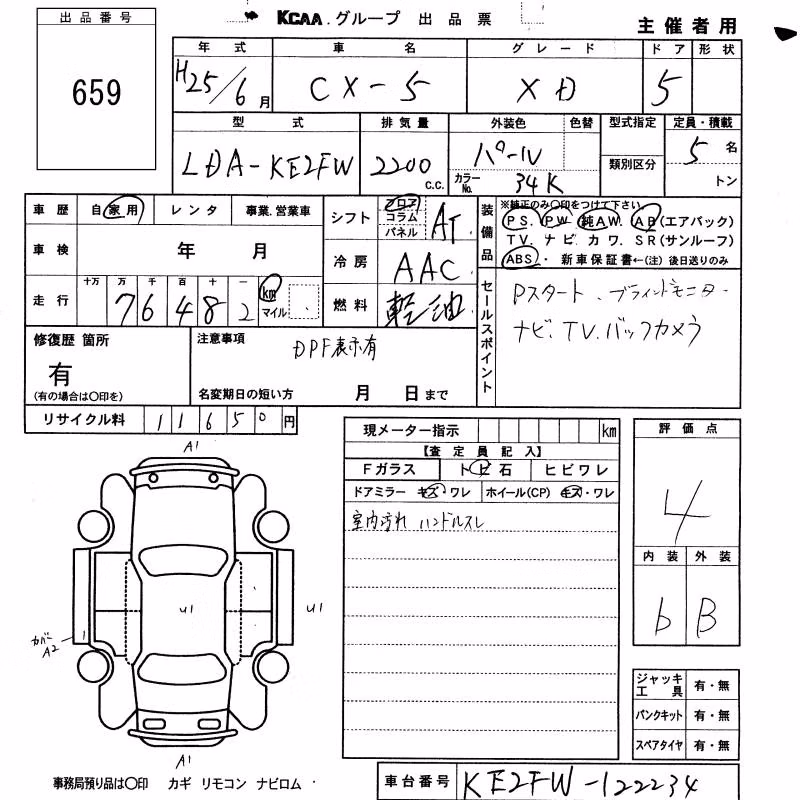 KCAA.グループ 出品票
主催者用
出品番号
659
年式 車名 グレード ドア 形状
H25/6月 CX-5 XD 5
型式 排気量 外装色 色替 型式指定 定員・積載
LDA-KE2FW 2200 c.c. パール 類別区分 5名
カラーNo. 34K トン
車歴 自家用 レンタ 事業.営業車
シフト フロア コラム パネル AT
装備品
※純正のみ〇印をつけて下さい
PS. PW. 純AW. AB(エアバック)
TV. ナビ. カワ. SR(サンルーフ)
ABS. 新車保証書←(注)後日送りのみ
車検 年 月
冷房 AAC
走行 十万 万 千 百 十 一
76482 km マイル
燃料 軽油
セールスポイント
Pスタート.ブラインドモニター
ナビ.TV.バックカメラ
修復歴 箇所
有
(有の場合は〇印を)
注意事項
DPF表示有
名変期日の短い方 月 日まで
リサイクル料 11650円
現メーター指示 km
【査定員記入】
Fガラス トビ石 ヒビワレ
ドアミラー キズ・ワレ ホイール(CP) キズ・ワレ
室内汚れ ハンドルスレ
評価点
4
内装 外装
b B
A1
U1 U1
カバーA2
A1
ジャッキ工具 有・無
パンクキット 有・無
スペアタイヤ 有・無
事務局預り品は〇印 カギ リモコン ナビロム
車台番号 KE2FW-122234